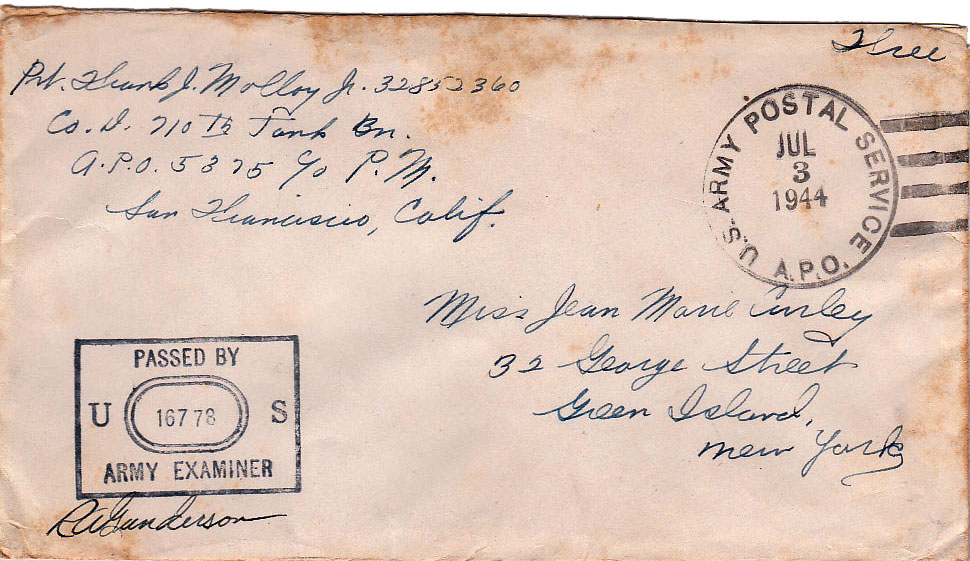 Three
Pvt. Frank J. Molloy Jr. 32852360
Co. D. 710th Tank Bn.
A.P.O. 5375 c/o P.M.
San Francisco, Calif.
U.S. ARMY POSTAL SERVICE
JUL
3
1944
A.P.O.
Miss Jean Marie Curley
32 George Street
Green Island,
New York
PASSED BY
U 16778 S
ARMY EXAMINER
RA Gunderson